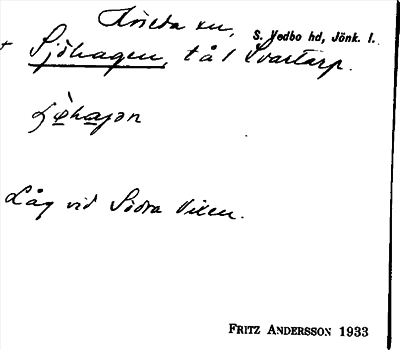 Flisby sn, S. Vedbo hd, Jönk. l.
+ Sjöhagen, t å l Svartarp.
Låg vid Södra Vixen.
FRITZ ANDERSSON 1933